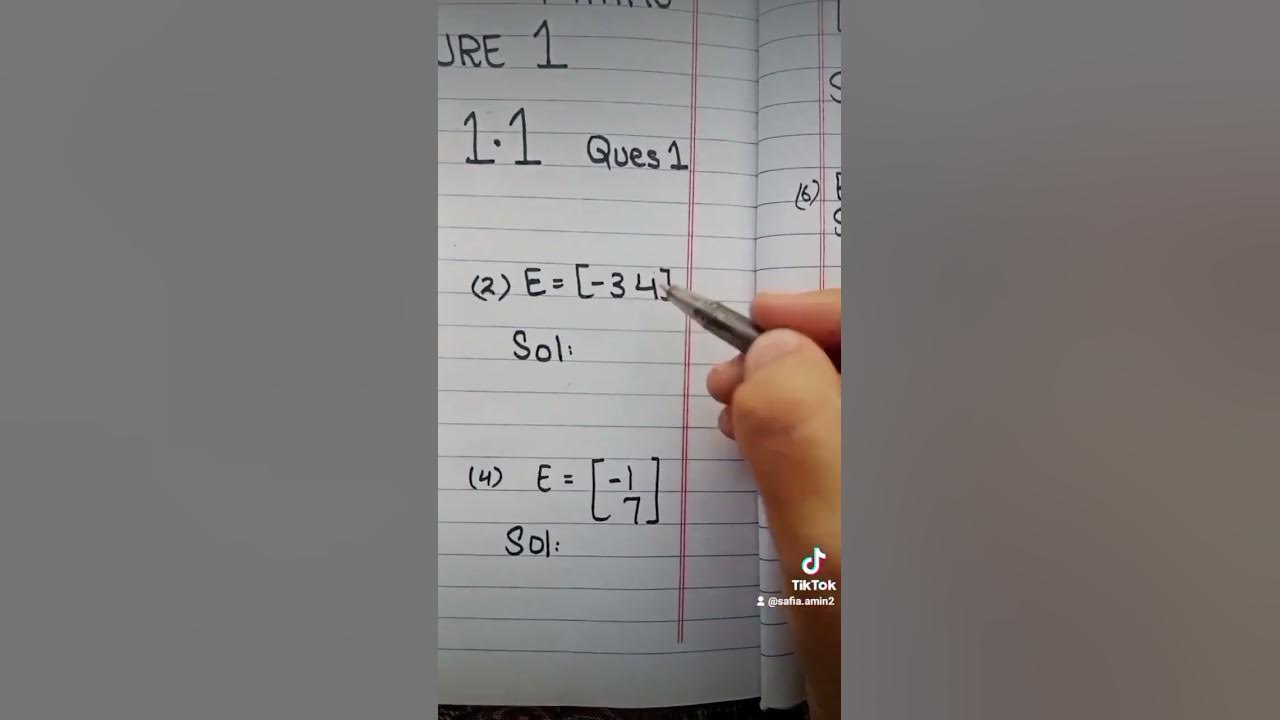 URE 1
1.1 Ques 1
(2) E = [-3 4]
Sol:
(4) E = [-1
7]
Sol:
(6)
TikTok
@safia.amin2